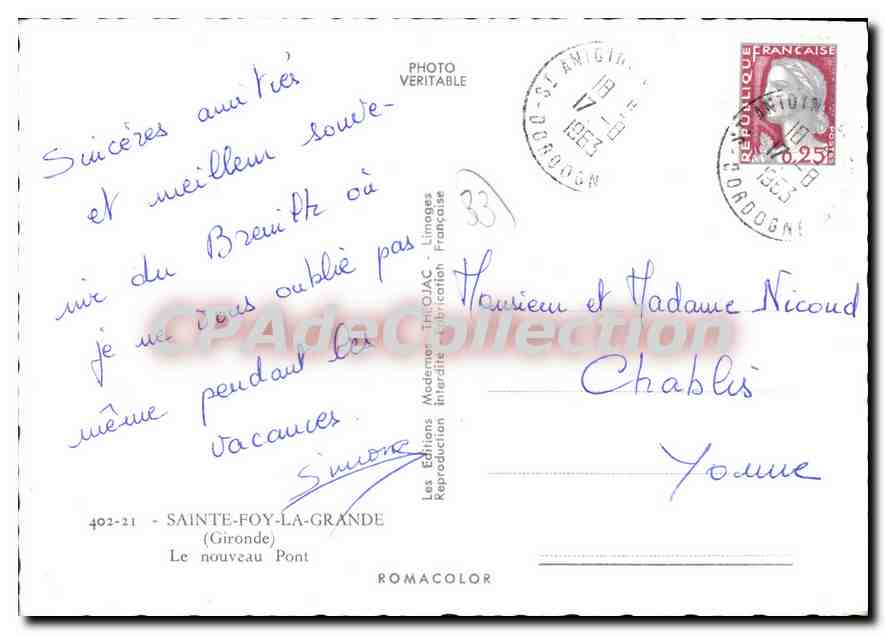 Sincères amitiés
et meilleur souve-
nir du Breuilh où
je ne vous oublie pas
même pendant les
vacances.
Simone
402-21 - SAINTE-FOY-LA-GRANDE
(Gironde)
Le nouveau Pont
PHOTO
VERITABLE
Les Editions Modernes THEOJAC - Limoges
Reproduction Interdite Fabrication Française
ROMACOLOR
33
18 H
17 -8
1963
DORDOGNE
REPUBLIQUE FRANCAISE
POSTES
0,25
18
17 -8
1963
DORDOGNE
Monsieur et Madame Nicoud
Chablis
Yonne
CPAdeCollection